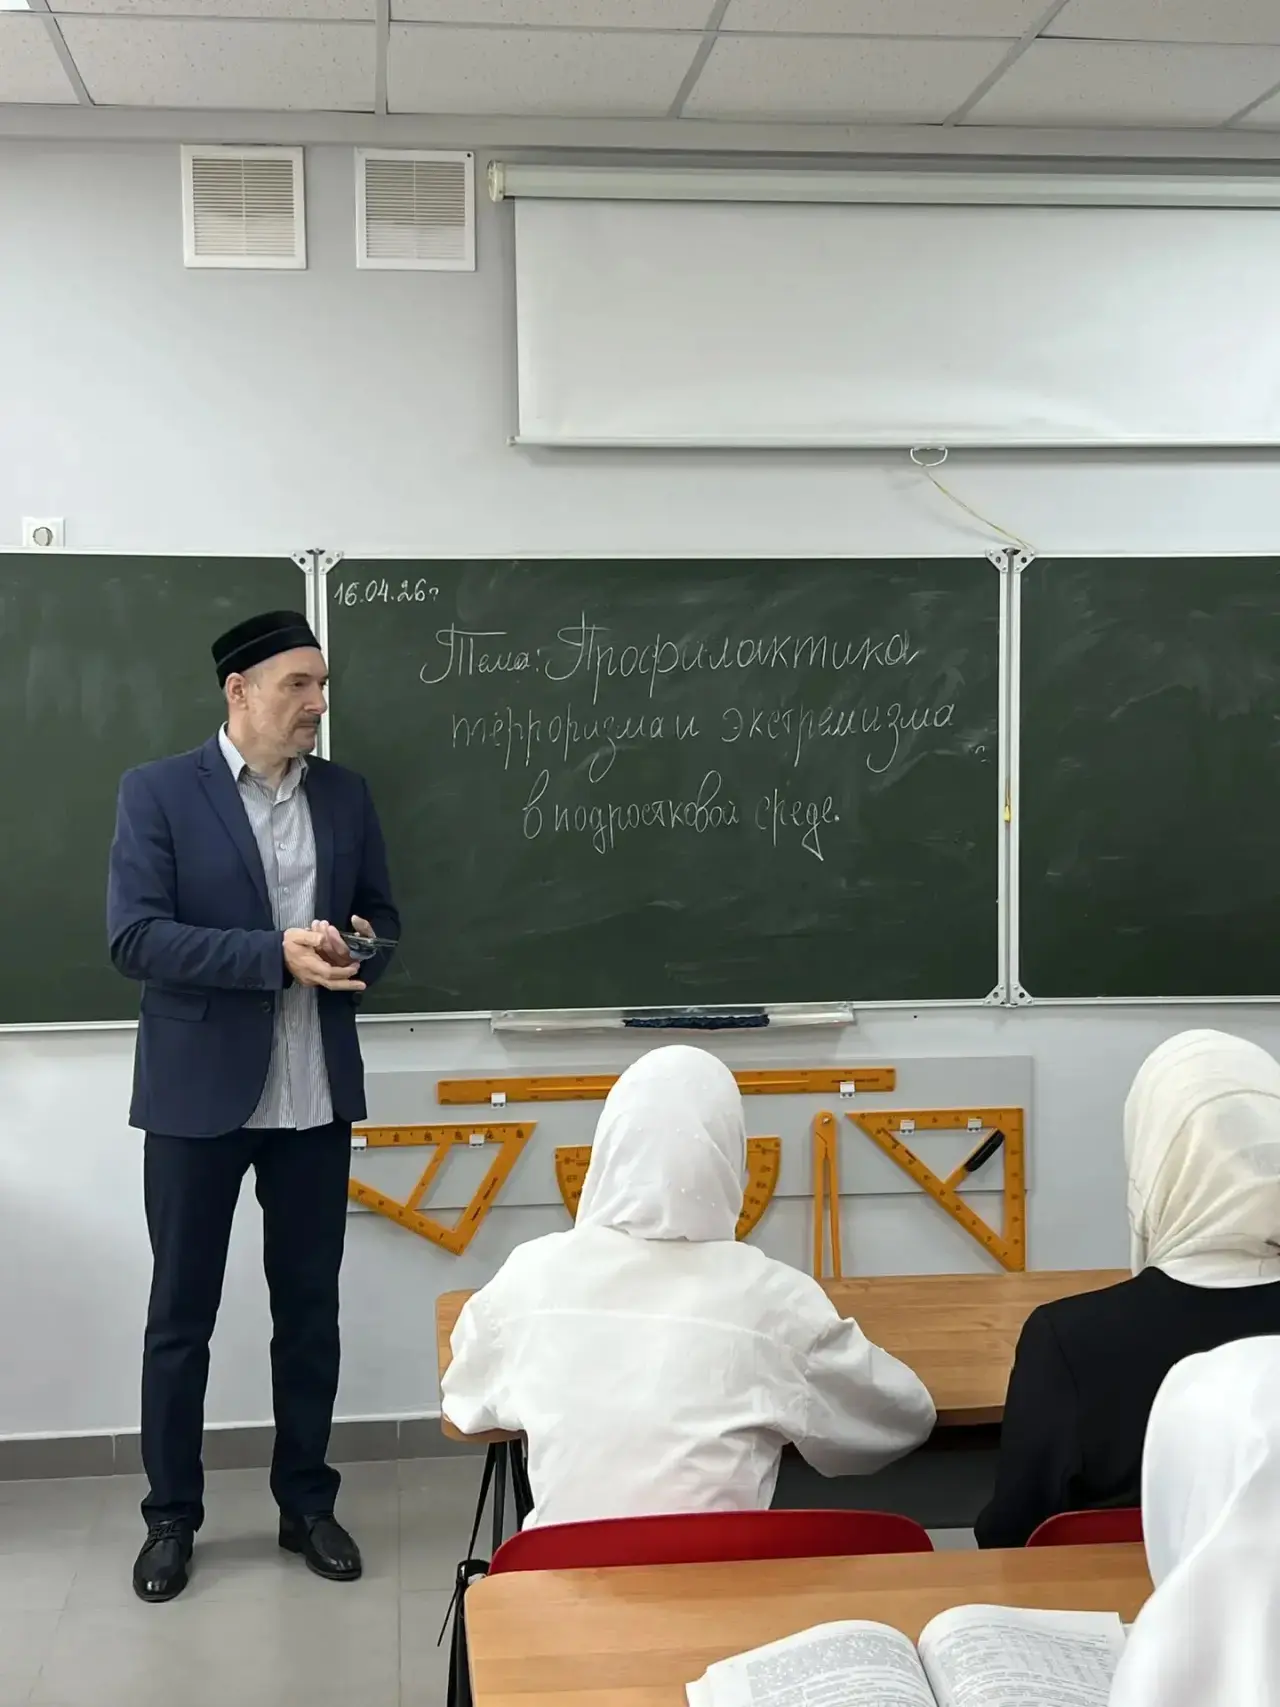 16.04.26г
Тема: Профилактика
терроризма и экстремизма
в подростковой среде.